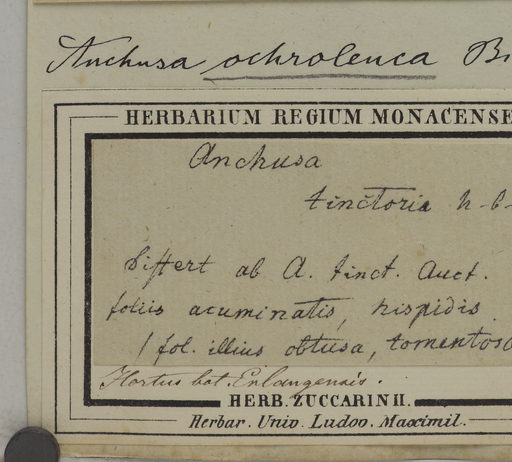 Anchusa ochroleuca Bi
HERBARIUM REGIUM MONACENSE
Anchusa
tinctoria h-b-
Differt ab A. tinct. Auct.
foliis acuminatis, hispidis
/ fol. illius obtusa, tomentosa
Hortus bot. Erlangensis.
HERB. ZUCCARINII.
Herbar. Univ. Ludov. Maximil.